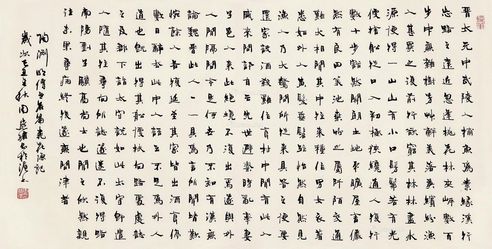 晉太元中武陵人捕魚為業緣溪行
忘路之遠近忽逢桃花林夾岸數百
步中無雜樹芳草鮮美落英繽紛漁
人甚異之復前行欲窮其林林盡水
源便得一山山有小口髣髴若有光
便捨船從口入初極狹纔通人復行
數十步豁然開朗土地平曠屋舍儼
然有良田美池桑竹之屬阡陌交通
雞犬相聞其中往來種作男女衣著
悉如外人黃髮垂髫並怡然自樂見
漁人乃大驚問所從來具答之便要
還家設酒殺雞作食村中聞有此人
咸來問訊自云先世避秦時亂率妻
子邑人來此絕境不復出焉遂與外
人間隔問今是何世乃不知有漢無
論魏晉此人一一為具言所聞皆歎
惋餘人各復延至其家皆出酒食停
數日辭去此中人語云不足為外人
道也既出得其船便扶向路處處誌
之及郡下詣太守說如此太守即遣
人隨其往尋向所誌遂迷不復得路
南陽劉子驥高尚士也聞之欣然規
往未果尋病終後遂無問津者
陶淵明傳世名篇桃花源記
歲次